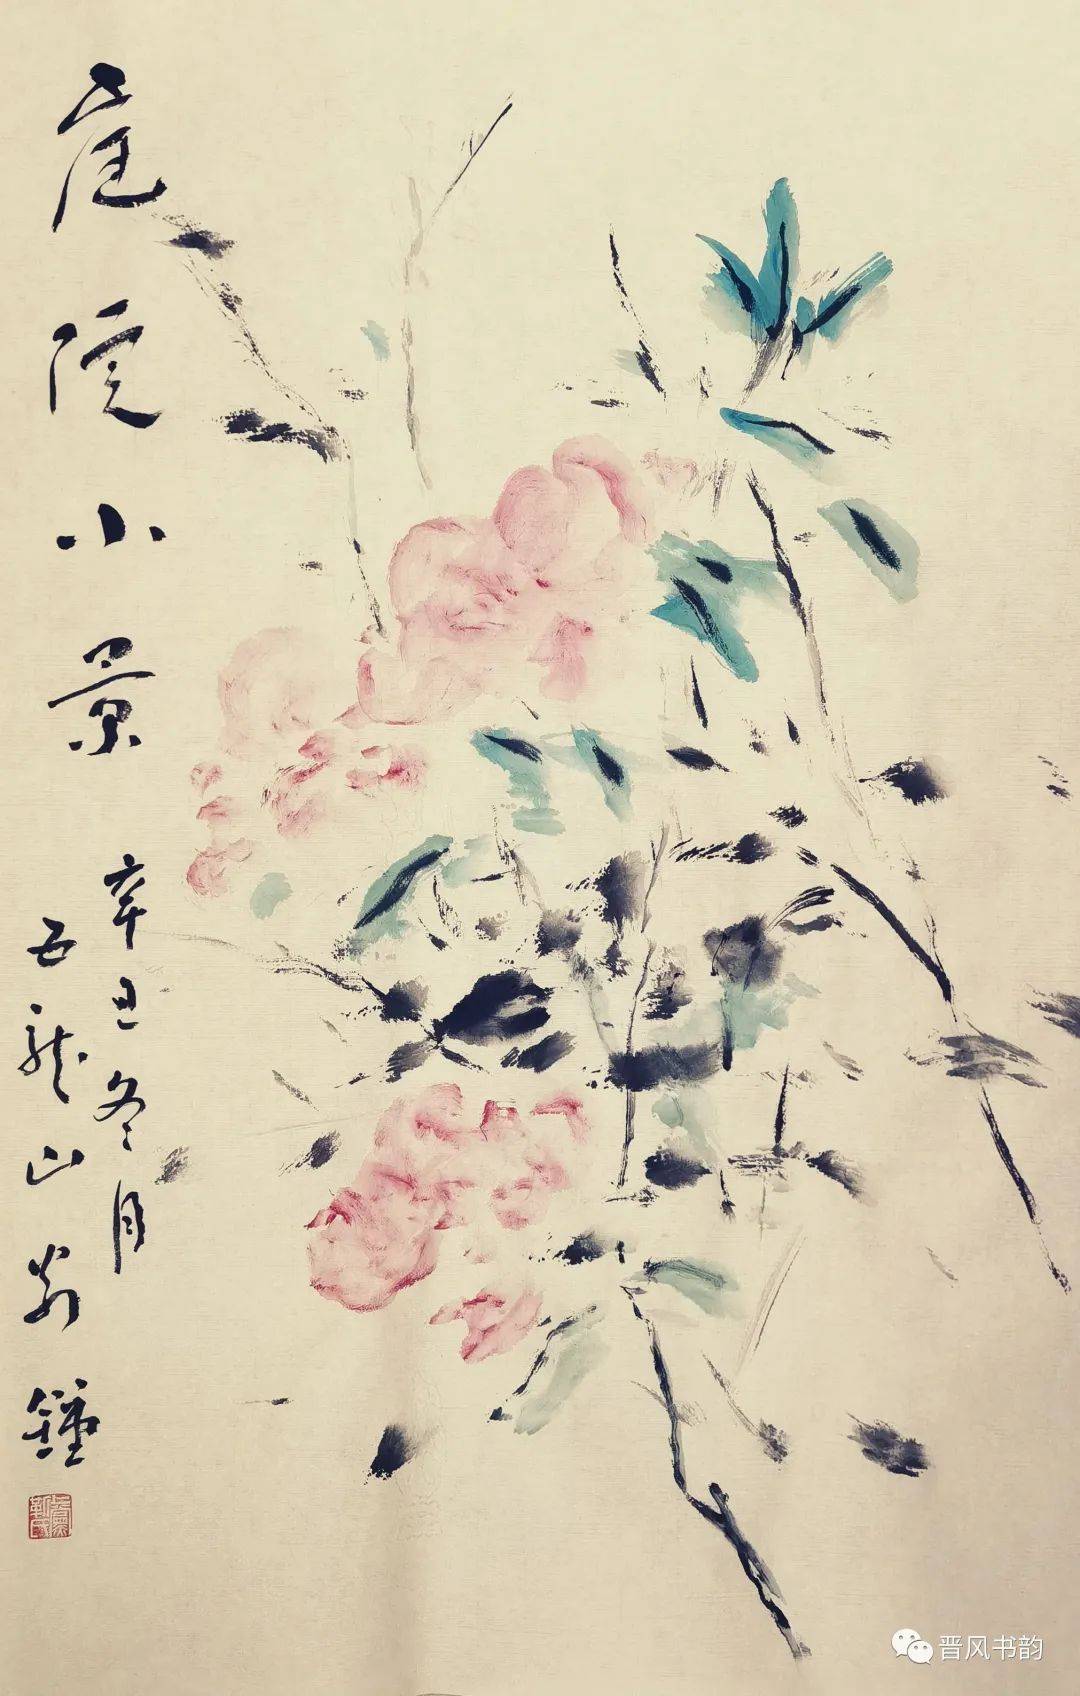 庭院小景
辛丑冬月
五龙山
鐘
晋风书韵